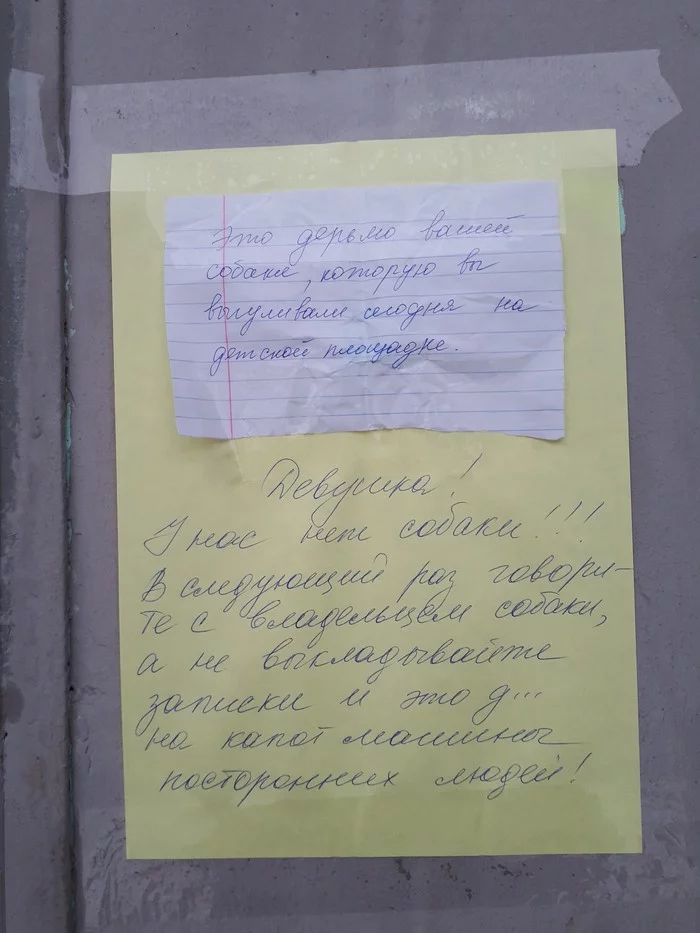 Это дерьмо вашей
собаке, которую вы
выгуливали сегодня на
детской площадке.
Девушка!
У нас нет собаки!!!
В следующий раз говори-
те с владельцем собаки,
а не выкладывайте
записки и это д...
на капот машины
посторонних людей!